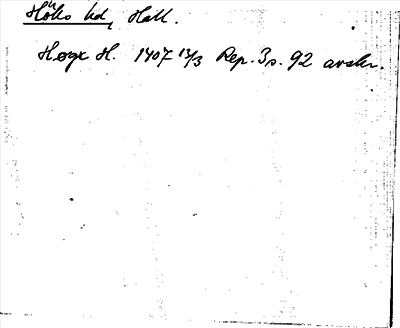 Höks hd, Hall.
Høgx H. 1407 13/3 Rep. 3 s. 92 avskr.